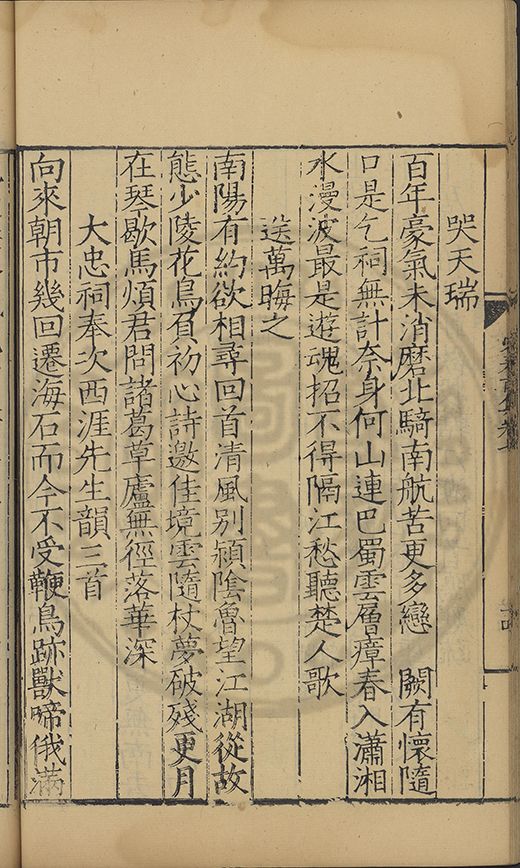 哭天瑞
百年豪氣未消磨北騎南航苦更多戀　闕有懷隨
口是乞祠無計奈身何山連巴蜀雲層瘴春入瀟湘
水漫波最是遊魂招不得隔江愁聽楚人歌
送萬晦之
南陽有約欲相尋回首清風別潁陰魯望江湖從故
態少陵花鳥負初心詩邀佳境雲隨杖夢破殘更月
在琴歇馬煩君問諸葛草廬無徑落華深
大忠祠奉次西涯先生韻三首
向來朝市幾回遷海石而今不受鞭鳥跡獸啼俄滿